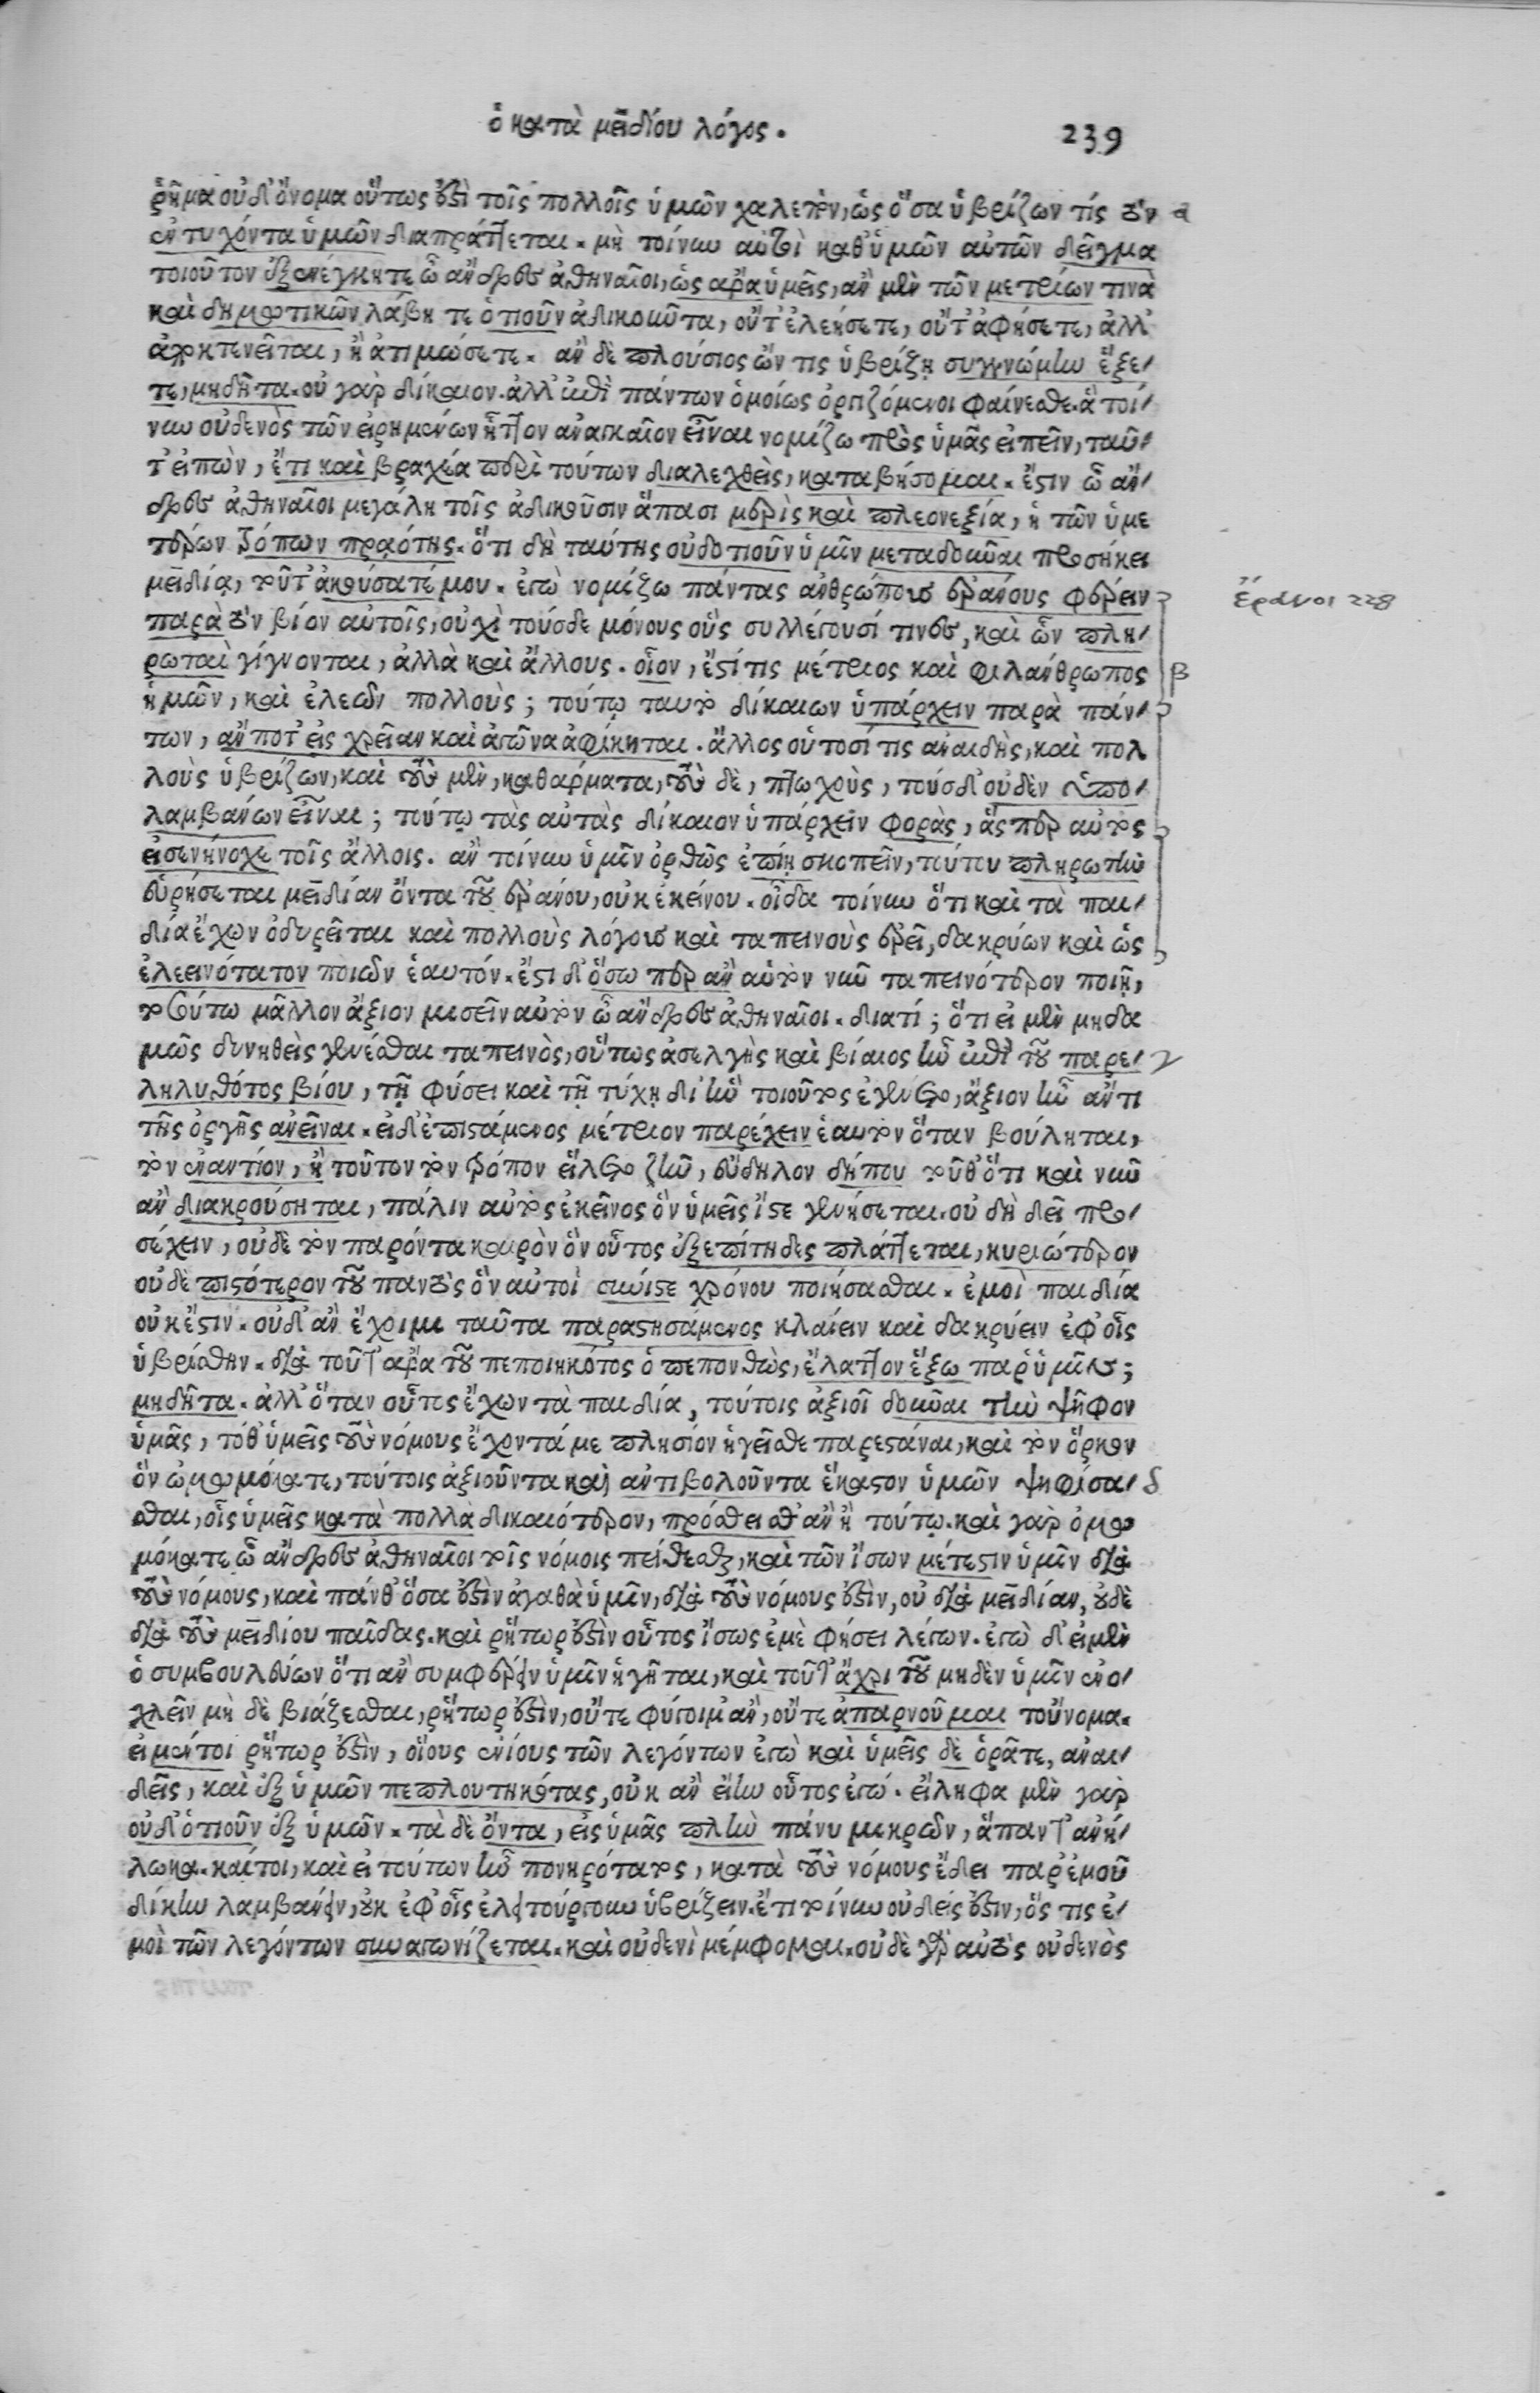 ὁ κατὰ μειδίου λόγος. 239
ῥῆμα οὐδ' ὄνομα οὕτως ἐστὶ τοῖς πολλοῖς ὑμῶν χαλεπὸν, ὡς ὅσα ὑβρίζων τίς τὸν α
ἐντυχόντα ὑμῶν διαπράττεται. μὴ τοίνυν αὐτοὶ καθ' ὑμῶν αὐτῶν δεῖγμα
τοιοῦτον ἐξενέγκητε ὦ ἄνδρες ἀθηναῖοι, ὡς ἄρα ὑμεῖς, ἂν μὲν τῶν μετρίων τινὰ
καὶ δημοτικῶν λάβητε ὁτιοῦν ἀδικοῦντα, οὔτ' ἐλεήσετε, οὔτ' ἀφήσετε, ἀλλ'
ἀποκτενεῖται, ἢ ἀτιμώσετε. ἂν δὲ πλούσιος ὤν τις ὑβρίζῃ συγγνώμην ἕξε-
τε, μηδῆτα. οὐ γὰρ δίκαιον. ἀλλ' ἐπὶ πάντων ὁμοίως ὀργιζόμενοι φαίνεσθε. ἃ τοί-
νυν οὐδενὸς τῶν εἰρημένων ἧττον ἀναγκαῖον εἶναι νομίζω πρὸς ὑμᾶς εἰπεῖν, ταῦ-
τ' εἰπὼν, ἔτι καὶ βραχέα περὶ τούτων διαλεχθεὶς, καταβήσομαι. ἔστιν ὦ ἄν-
δρες ἀθηναῖοι μεγάλη τοῖς ἀδικοῦσιν ἅπασι μερὶς καὶ πλεονεξία, ἡ τῶν ὑμε
τέρων τρόπων πραότης. ὅτι δὴ ταύτης οὐδοτιοῦν ὑμῖν μεταδοῦναι προσήκει
μειδίᾳ, τοῦτ' ἀκούσατέ μου. ἐγὼ νομίζω πάντας ἀνθρώπους ἐράνους φέρειν
ἔρανοι 228
παρὰ τὸν βίον αὐτοῖς, οὐχὶ τούσδε μόνους οὓς συλλέγουσί τινες, καὶ ὧν πλη-
ρωταὶ γίγνονται, ἀλλὰ καὶ ἄλλους. οἷον, ἔστί τις μέτριος καὶ φιλάνθρωπος β
ἡμῶν, καὶ ἐλεῶν πολλοὺς; τούτῳ ταυτὸ δίκαιων ὑπάρχειν παρὰ πάν-
των, ἄν ποτ' εἰς χρεῖαν καὶ ἀγῶνα ἀφίκηται. ἄλλος οὑτοσί τις ἀναιδὴς, καὶ πολ
λοὺς ὑβρίζων, καὶ τοὺς μὲν, καθάρματα, τοὺς δὲ, πτωχοὺς, τούσδ' οὐδὲν ὑπο-
λαμβάνων εἶναι; τούτῳ τὰς αὐτὰς δίκαιον ὑπάρχειν φορὰς, ἅς περ αὐτὸς
εἰσενήνοχε τοῖς ἄλλοις. ἂν τοίνυν ὑμῖν ὀρθῶς ἐπίῃ σκοπεῖν, τούτου πληρωτὴν
εὑρήσεται μειδίαν ὄντα τοῦ ἐράνου, οὐκ ἐκείνου. οἶδα τοίνυν ὅτι καὶ τὰ παι-
δία ἔχων ὀδυρεῖται καὶ πολλοὺς λόγους καὶ ταπεινοὺς ἐρεῖ, δακρύων καὶ ὡς
ἐλεεινότατον ποιῶν ἑαυτόν. ἔστι δ' ὅσῳ περ ἂν αὑτὸν νῦν ταπεινότερον ποιῇ,
τοσούτῳ μᾶλλον ἄξιον μισεῖν αὐτὸν ὦ ἄνδρες ἀθηναῖοι. διατί; ὅτι εἰ μὲν μηδα
μῶς δυνηθεὶς γενέσθαι ταπεινὸς, οὕτως ἀσελγὴς καὶ βίαιος ἦν ἐπὶ τοῦ παρε- γ
ληλυθότος βίου, τῇ φύσει καὶ τῇ τύχῃ δι' ἣν τοιοῦτος ἐγένετο, ἄξιον ἦν ἄν τι
τῆς ὀργῆς ἀνεῖναι. εἰ δ' ἐπιστάμενος μέτριον παρέχειν ἑαυτὸν ὅταν βούληται,
τὸν ἐναντίον, ἢ τοῦτον τὸν τρόπον εἵλετο ζῆν, εὔδηλον δήπου τοῦθ' ὅτι καὶ νῦν
ἂν διακρούσηται, πάλιν αὐτὸς ἐκεῖνος ὃν ὑμεῖς ἴστε γενήσεται. οὐ δὴ δεῖ προ-
σέχειν, οὐδὲ τὸν παρόντα καιρὸν ὃν οὗτος ἐξεπίτηδες πλάττεται, κυριώτερον
οὐδὲ πιστότερον τοῦ παντὸς ὃν αὐτοὶ σύνιστε χρόνου ποιήσασθαι. ἐμοὶ παιδία
οὐκ ἔστιν. οὐδ' ἂν ἔχοιμι ταῦτα παραστησάμενος κλαίειν καὶ δακρύειν ἐφ' οἷς
ὑβρίσθην. διὰ τοῦτ' ἄρα τοῦ πεποιηκότος ὁ πεπονθὼς, ἔλαττον ἕξω παρ' ὑμῖν;
μηδῆτα. ἀλλ' ὅταν οὗτος ἔχων τὰ παιδία, τούτοις ἀξιοῖ δοῦναι τὴν ψῆφον
ὑμᾶς, τόθ' ὑμεῖς τοὺς νόμους ἔχοντά με πλησίον ἡγεῖσθε παρεστάναι, καὶ τὸν ὅρκον
ὃν ὠμωμόκατε, τούτοις ἀξιοῦντα καὶ ἀντιβολοῦντα ἕκαστον ὑμῶν ψηφίσα- δ
σθαι, οἷς ὑμεῖς κατὰ πολλὰ δικαιότερον, πρόσθεισθ' ἂν ἢ τούτῳ. καὶ γὰρ ὀμω
μόκατε ὦ ἄνδρες ἀθηναῖοι τοῖς νόμοις πείθεσθαι, καὶ τῶν ἴσων μέτεστιν ὑμῖν διὰ
τοὺς νόμους, καὶ πάνθ' ὅσα ἐστὶν ἀγαθὰ ὑμῖν, διὰ τοὺς νόμους ἐστὶν, οὐ διὰ μειδίαν, οὐδὲ
διὰ τοὺς μειδίου παῖδας. καὶ ῥήτωρ ἐστὶν οὗτος ἴσως ἐμὲ φήσει λέγων. ἐγὼ δ' εἰ μὲν
ὁ συμβουλεύων ὅτι ἂν συμφέρειν ὑμῖν ἡγῆται, καὶ τοῦτ' ἄχρι τοῦ μηδὲν ὑμῖν ἐνο-
χλεῖν μὴ δὲ βιάζεσθαι, ῥήτωρ ἐστὶν, οὔτε φύγοιμ' ἂν, οὔτε ἀπαρνοῦμαι τοὔνομα.
εἰ μέντοι ῥήτωρ ἐστὶν, οἵους ἐνίους τῶν λεγόντων ἐγὼ καὶ ὑμεῖς δὲ ὁρᾶτε, ἀναι-
δεῖς, καὶ ἐξ ὑμῶν πεπλουτηκότας, οὐκ ἂν εἴην οὗτος ἐγώ. εἴληφα μὲν γὰρ
οὐδ' ὁτιοῦν ἐξ ὑμῶν. τὰ δὲ ὄντα, εἰς ὑμᾶς πλὴν πάνυ μικρῶν, ἅπαντ' ἀνή-
λωκα. καίτοι, καὶ εἰ τούτων ἦν πονηρότατος, κατὰ τοὺς νόμους ἔδει παρ' ἐμοῦ
δίκην λαμβάνειν, οὐκ ἐφ' οἷς ἐλειτούργουν ὑβρίζειν. ἔτι τοίνυν οὐδείς ἐστιν, ὅς τις ἐ-
μοὶ τῶν λεγόντων συναγωνίζεται. καὶ οὐδενὶ μέμφομαι. οὐδὲ γὰρ αὐτὸς οὐδενὸς